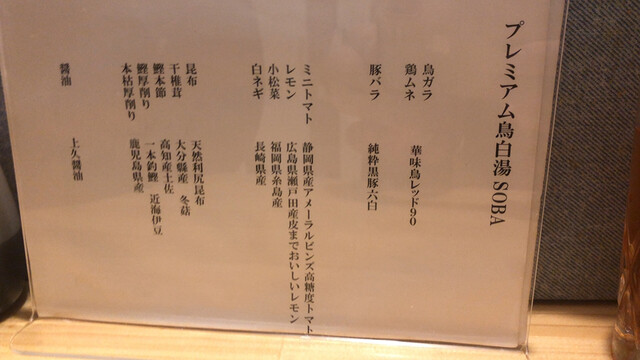 プレミアム鳥白湯 SOBA
鳥ガラ
鶏ムネ 華味鳥レッド90
豚バラ 純粋黒豚六白
ミニトマト 静岡県産アメーラルビンズ高糖度トマト
レモン 広島県瀬戸田産皮までおいしいレモン
小松菜 福岡県糸島産
白ネギ 長崎県産
昆布 天然利尻昆布
干椎茸 大分縣産 冬菇
鰹本節 高知産土佐
鰹厚削り 一本釣鰹 近海伊豆
本枯厚削り 鹿児島県産
醤油 上久醤油